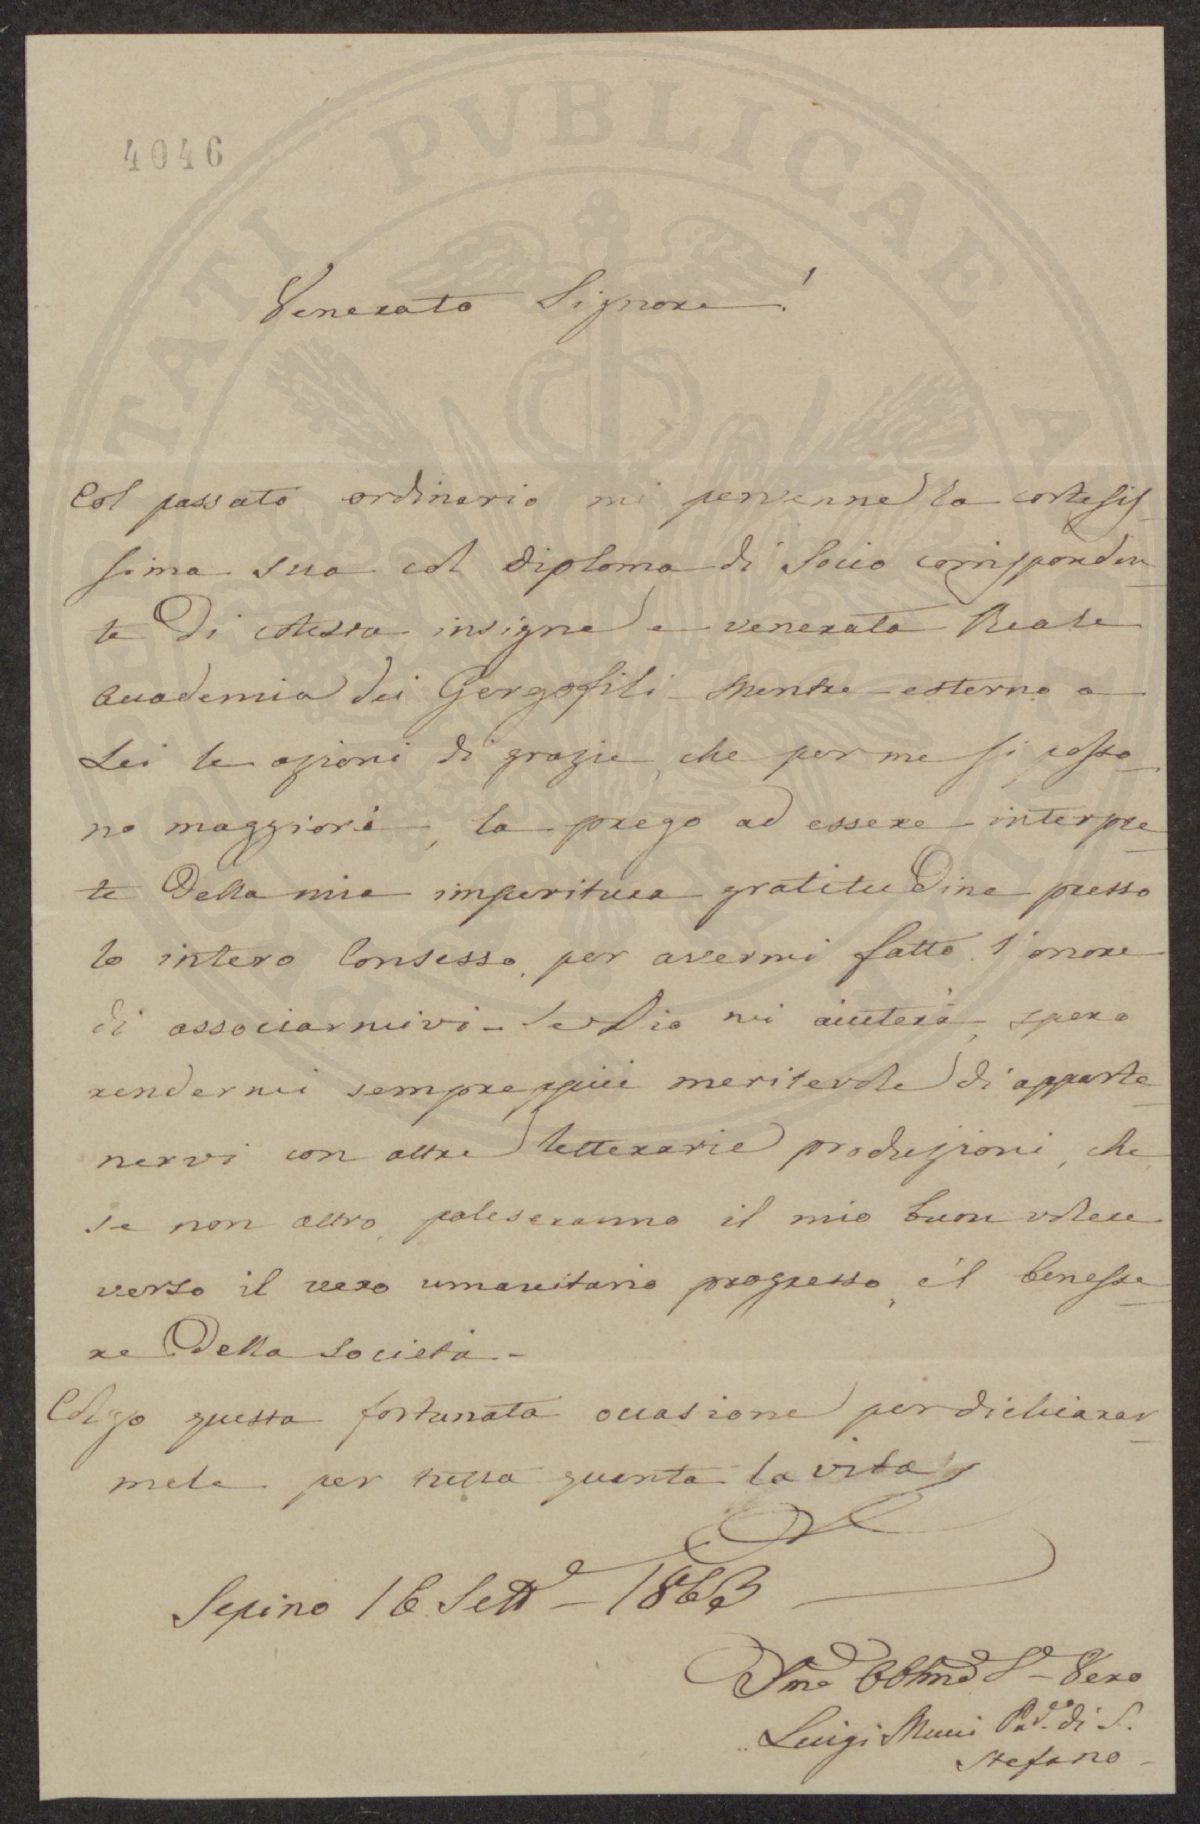 4046
Venerato Signore!
Col passato ordinario mi pervenne la cortesis-
sima sua col diploma di Socio corrisponden-
te Di cotesta insigne e venerata Reale
Accademia dei Gergofili - Mentre esterno a
Lei le azioni di grazie, che per me si posso-
no maggiori, la prego ad essere interpre-
te Della mia imperitura gratituDine presso
lo intero Consesso, per avermi fatto l'onore
di associarmivi - Se Dio mi aiuterà, spero
rendermi sempreppiù meritevole di apparte-
nervi con altre letterarie produzioni, che,
se non altro, paleseranno il mio buon volere
verso il vero umanitario progresso, e'l benesse-
re Della società -
Colgo questa fortunata occasione per dichiarar-
mele per tutta quanta la vita
Sepino 16 Sett.e - 1863
Obbmo Se - Vero
Luigi Mucci di S.
Stefano -